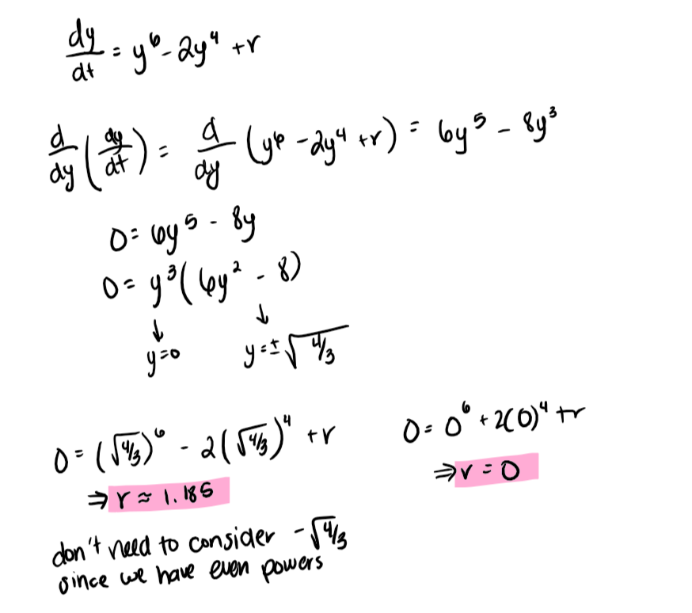 dy/dt = y⁶ - 2y⁴ + r
d/dy (dy/dt) = d/dy (y⁶ - 2y⁴ + r) = 6y⁵ - 8y³
0 = 6y⁵ - 8y
0 = y³(6y² - 8)
↓ ↓
y=0 y=±√4/3
0 = (√4/3)⁶ - 2(√4/3)⁴ + r
⇒ r ≈ 1.185
0 = 0⁶ + 2(0)⁴ + r
⇒ r = 0
don't need to consider -√4/3
since we have even powers